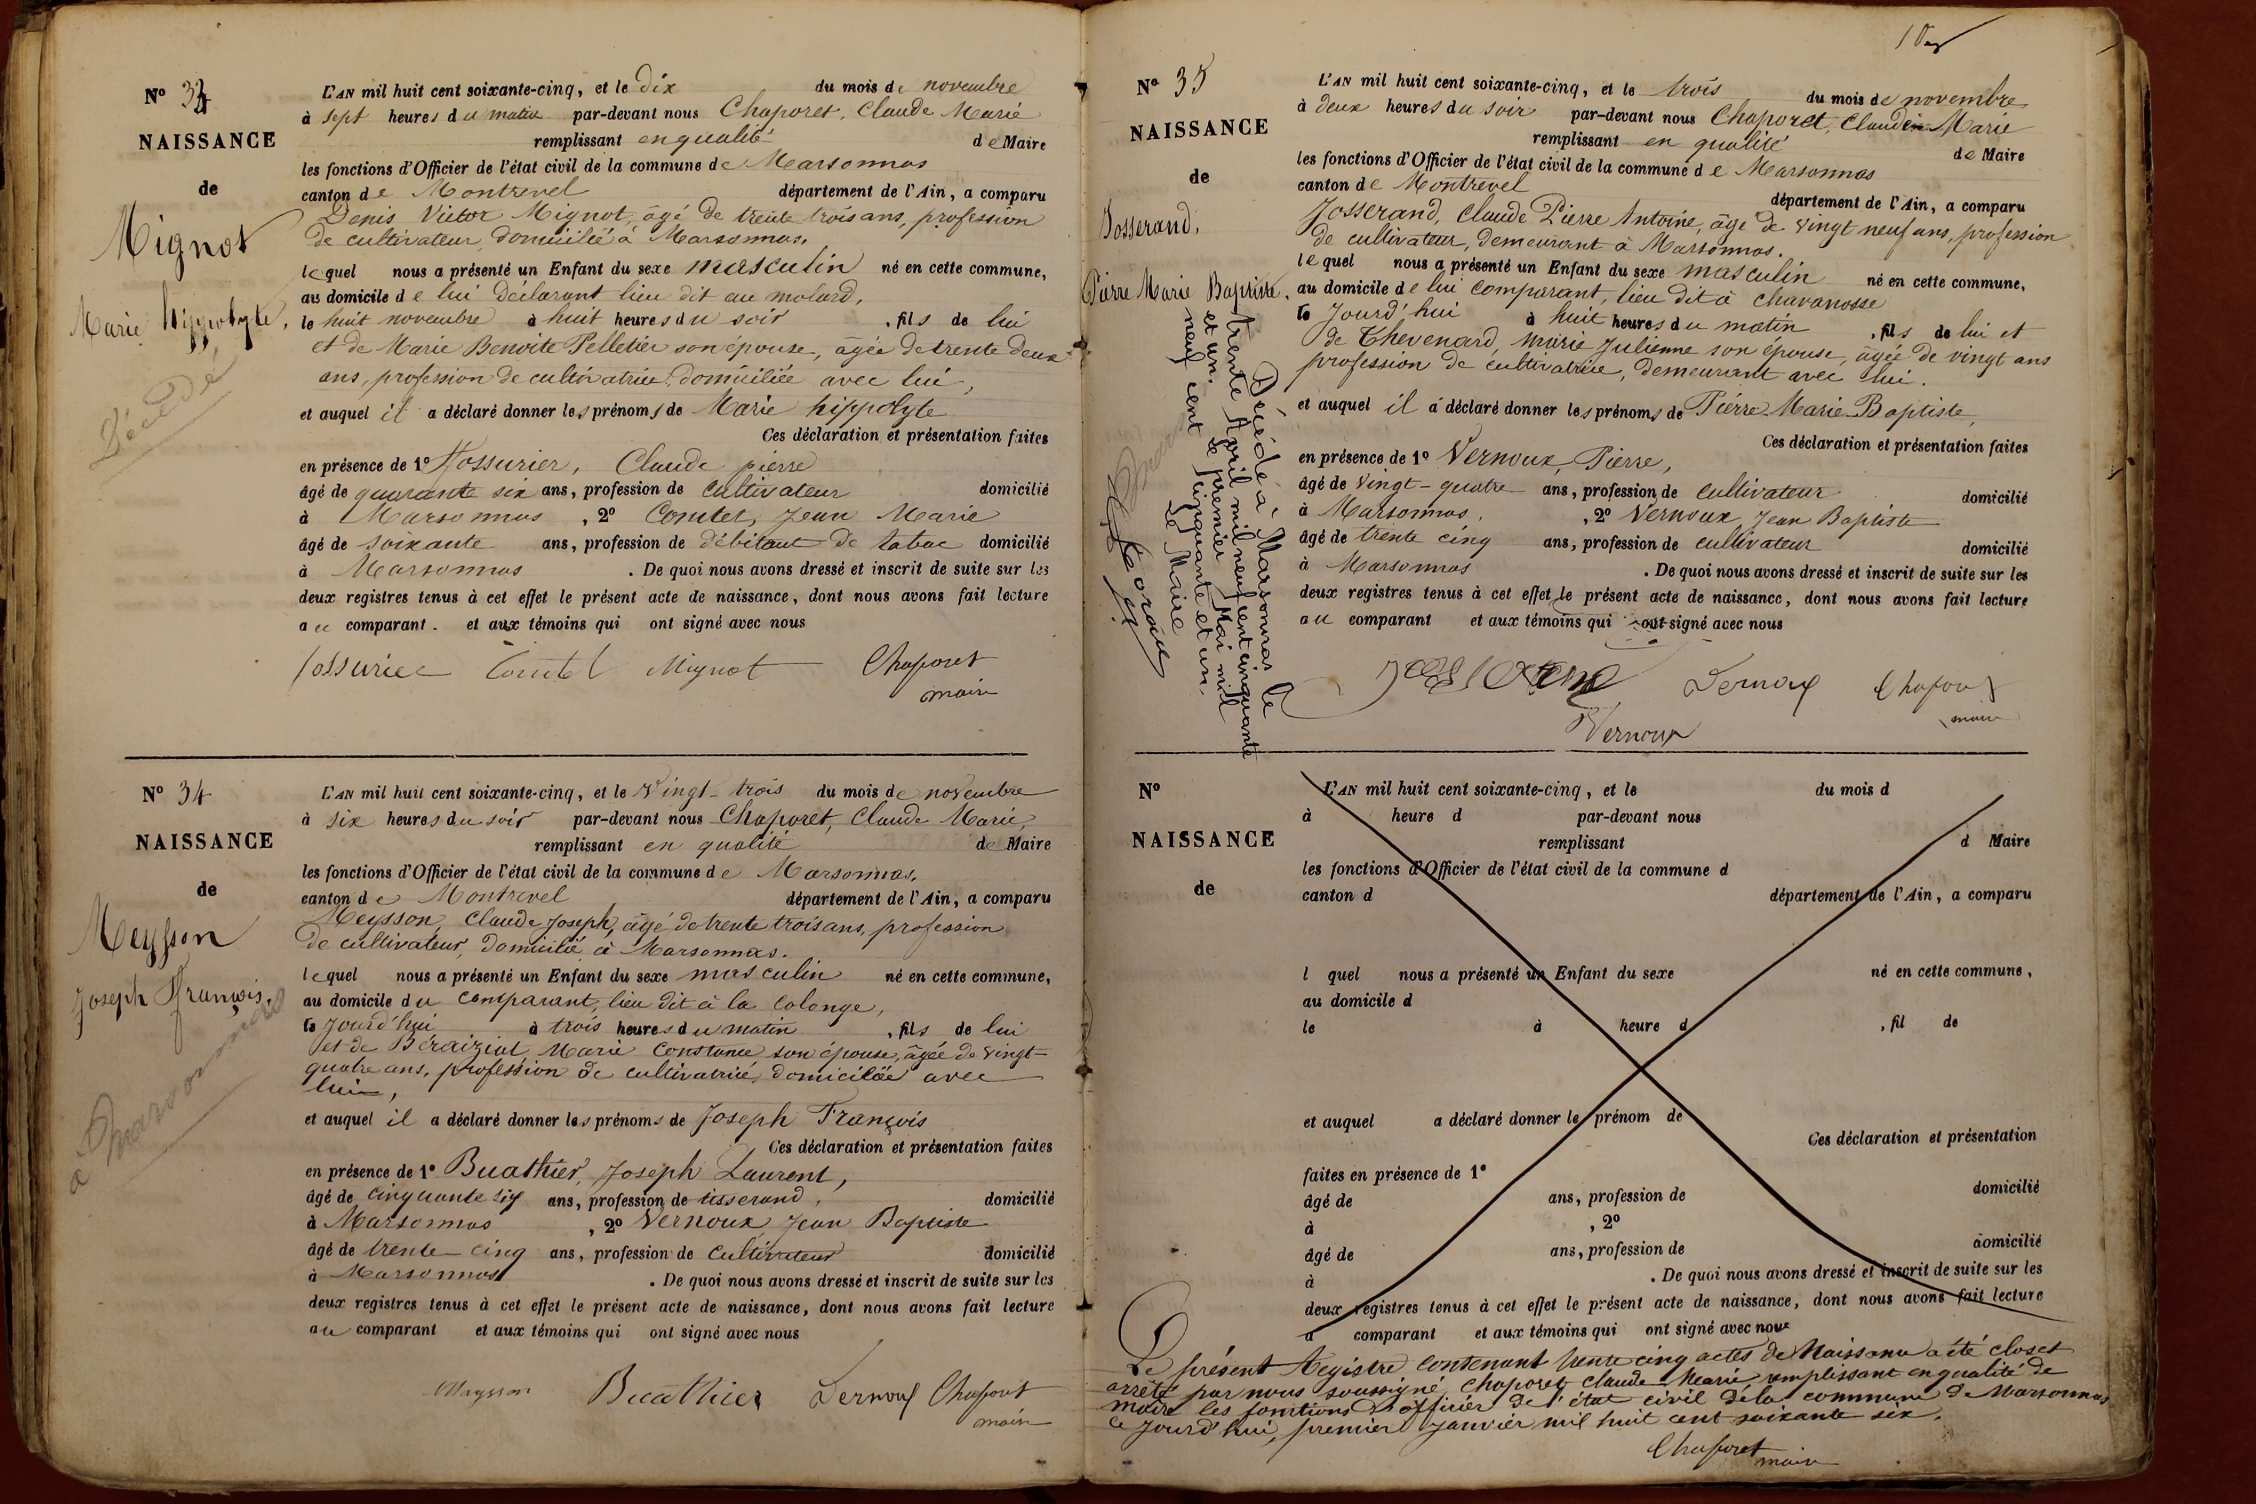 Nº 33
NAISSANCE
de
Mignot
Marie hippolyte,
Décédé
L'AN mil huit cent soixante-cinq, et le dix du mois de novembre
à sept heures du matin par-devant nous Chaporet, Claude Marie
remplissant en qualité de Maire
les fonctions d'Officier de l'état civil de la commune de Marsonnas
canton de Montrevel département de l'Ain, a comparu
Denis Victor Mignot, âgé de trente trois ans, profession
de cultivateur, domicilié à Marsonnas,
lequel nous a présenté un Enfant du sexe masculin né en cette commune,
au domicile de lui Déclarant lieu dit au molard,
le huit novembre à huit heures du soir, fils de lui
et de Marie Benoite Pelletier son épouse, âgée de trente deux
ans, profession de cultivatrice, domiciliée avec lui,
et auquel il a déclaré donner les prénoms de Marie hippolyte
Ces déclaration et présentation faites
en présence de 1º Jossurier, Claude pierre
âgé de quarante six ans, profession de cultivateur domicilié
à Marsonnas, 2º Comtet, Jean Marie
âgé de soixante ans, profession de débitant de tabac domicilié
à Marsonnas. De quoi nous avons dressé et inscrit de suite sur les
deux registres tenus à cet effet le présent acte de naissance, dont nous avons fait lecture
au comparant. et aux témoins qui ont signé avec nous
Jossurier Comtet Mignot Chaporet
maire
Nº 34
NAISSANCE
de
Meysson
Joseph François,
a Marsonnas
L'AN mil huit cent soixante-cinq, et le vingt-trois du mois de novembre
à six heures du soir par-devant nous Chaporet, Claude Marie,
remplissant en qualité de Maire
les fonctions d'Officier de l'état civil de la commune de Marsonnas,
canton de Montrevel département de l'Ain, a comparu
Meysson, Claude Joseph, âgé de trente trois ans, profession
de cultivateur, domicilié à Marsonnas.
lequel nous a présenté un Enfant du sexe masculin né en cette commune,
au domicile du comparant, lieu dit à la Colonge,
le Jourd'hui à trois heures du matin, fils de lui
et de Béraiziat, Marie Constance, son épouse, âgée de vingt-
quatre ans, profession de cultivatrice, domiciliée avec
lui,
et auquel il a déclaré donner les prénoms de Joseph François
Ces déclaration et présentation faites
en présence de 1º Buathier, Joseph Laurent,
âgé de cinquante six ans, profession de tisserand, domicilié
à Marsonnas, 2º Vernoux, Jean Baptiste
âgé de trente-cinq ans, profession de cultivateur domicilié
à Marsonnas. De quoi nous avons dressé et inscrit de suite sur les
deux registres tenus à cet effet le présent acte de naissance, dont nous avons fait lecture
au comparant et aux témoins qui ont signé avec nous
Meysson Buathier Vernoux Chaporet
maire
Nº 35
NAISSANCE
de
Josserand,
Pierre Marie Baptiste,
Décédé à Marsonnas le
trente Avril mil neuf cent cinquante
et un. Le premier Mai mil
neuf cent cinquante et un,
Le Maire
L'AN mil huit cent soixante-cinq, et le trois du mois de novembre
à deux heures du soir par-devant nous Chaporet, Claude Marie
remplissant en qualité de Maire
les fonctions d'Officier de l'état civil de la commune de Marsonnas
canton de Montrevel département de l'Ain, a comparu
Josserand, Claude Pierre Antoine, âgé de vingt neuf ans, profession
de cultivateur, demeurant à Marsonnas.
lequel nous a présenté un Enfant du sexe masculin né en cette commune,
au domicile de lui comparant, lieu dit à chavanosse
le Jourd'hui à huit heures du matin, fils de lui et
de Thevenard, Marie Julienne son épouse, âgée de vingt ans
profession de cultivatrice, demeurant avec lui.
et auquel il a déclaré donner les prénoms de Pierre Marie Baptiste,
Ces déclaration et présentation faites
en présence de 1º Vernoux, Pierre,
âgé de vingt-quatre ans, profession de cultivateur domicilié
à Marsonnas, 2º Vernoux Jean Baptiste
âgé de trente cinq ans, profession de cultivateur domicilié
à Marsonnas. De quoi nous avons dressé et inscrit de suite sur les
deux registres tenus à cet effet le présent acte de naissance, dont nous avons fait lecture
au comparant et aux témoins qui ont signé avec nous
Josserand Vernoux Chaporet
maire
Vernoux
Nº
NAISSANCE
de
L'AN mil huit cent soixante-cinq, et le du mois d
à heure d par-devant nous
remplissant d Maire
les fonctions d'Officier de l'état civil de la commune d
canton d département de l'Ain, a comparu
l quel nous a présenté un Enfant du sexe né en cette commune,
au domicile d
le à heure d, fil de
et auquel a déclaré donner le prénom de
Ces déclaration et présentation
faites en présence de 1º
âgé de ans, profession de domicilié
à, 2º
âgé de ans, profession de domicilié
à. De quoi nous avons dressé et inscrit de suite sur les
deux registres tenus à cet effet le présent acte de naissance, dont nous avons fait lecture
a comparant et aux témoins qui ont signé avec nous
Le présent Registre contenant trente cinq actes de Naissance a été clos et
arrêté par nous soussigné, Chaporet Claude Marie, remplissant en qualité de
maire les fonctions d'officier de l'état civil de la commune de Marsonnas
ce Jourd'hui, premier Janvier mil huit cent soixante six.
Chaporet
maire